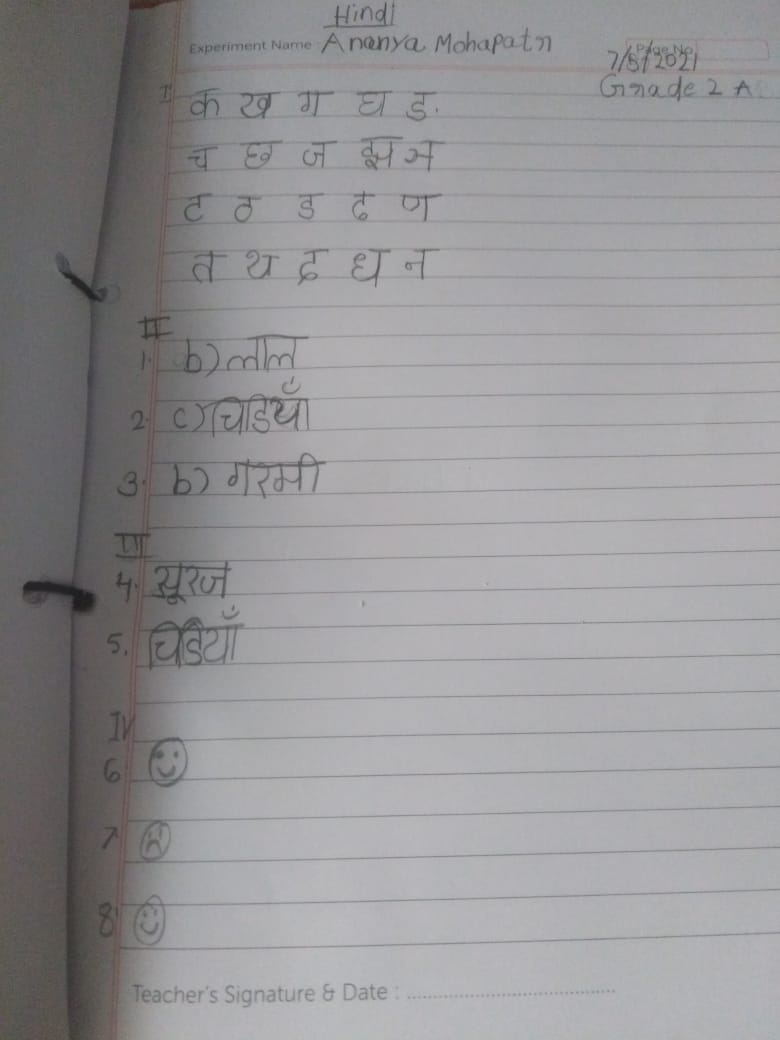 Hindi
Experiment Name Ananya Mohapatra
Page No.
7/5/2021
Grade 2 A
I क ख ग घ ङ
च छ ज झ ञ
ट ठ ड ढ ण
त थ द ध न
II
1. b) लाल
2. c) चिडियाँ
3. b) गरमी
III
4. सूरज
5. चिडियाँ
IV
6
7
8
Teacher's Signature & Date :